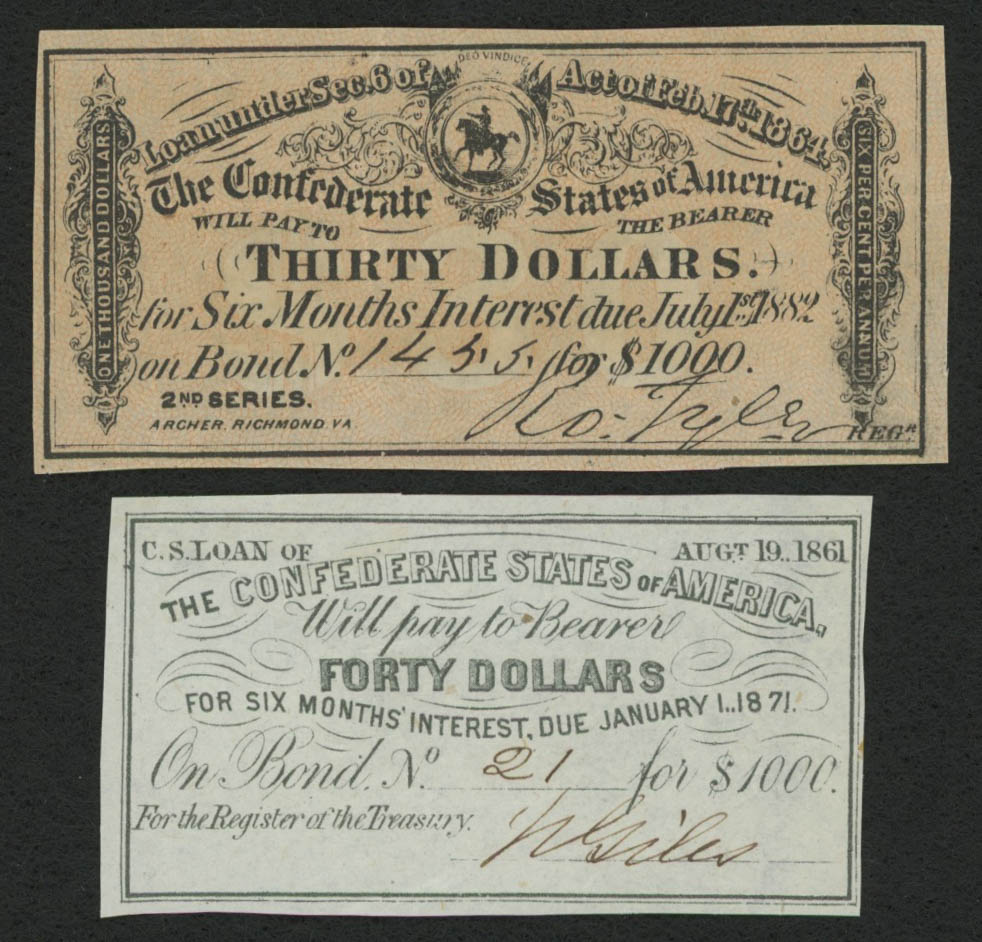 DEO VINDICE
Loan under Sec. 6 of Act of Feb. 17th 1864.
The Confederate States of America
WILL PAY TO THE BEARER
THIRTY DOLLARS.
for Six Months Interest due July 1st 1882
on Bond No. 1455. for $1000.
2ND SERIES.
ARCHER, RICHMOND VA
Ro. Tyler REGR.
ONE THOUSAND DOLLARS
SIX PER CENT PER ANNUM
C.S. LOAN OF AUGT. 19.. 1861
THE CONFEDERATE STATES OF AMERICA,
Will pay to Bearer
FORTY DOLLARS
FOR SIX MONTHS' INTEREST, DUE JANUARY 1.. 1871.
On Bond. No. 21 for $1000.
For the Register of the Treasury.
Giles